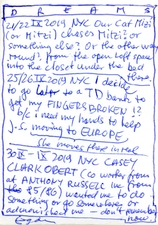 DREAMS
21/22 IX 2019 NYC Our Cat Mitzi
(or Mitzi) chases Mitzi? or
something else? Or the other way
round? from the open loft space
into the closet under the bed
there.
25/26 IX 2019 NYC I decide
to go later to a TD bank to
get my FINGERS BROKEN!?
b/c i need my hands to help
J.S. moving to EUROPE.
She moves there in real
30 IX 2019 NYC CASEY
CLARK OBERT (co works from
at ANTHONY RUSSELS inc. from
wanted me to do
something or go somewhere or
me – don't remember
now.